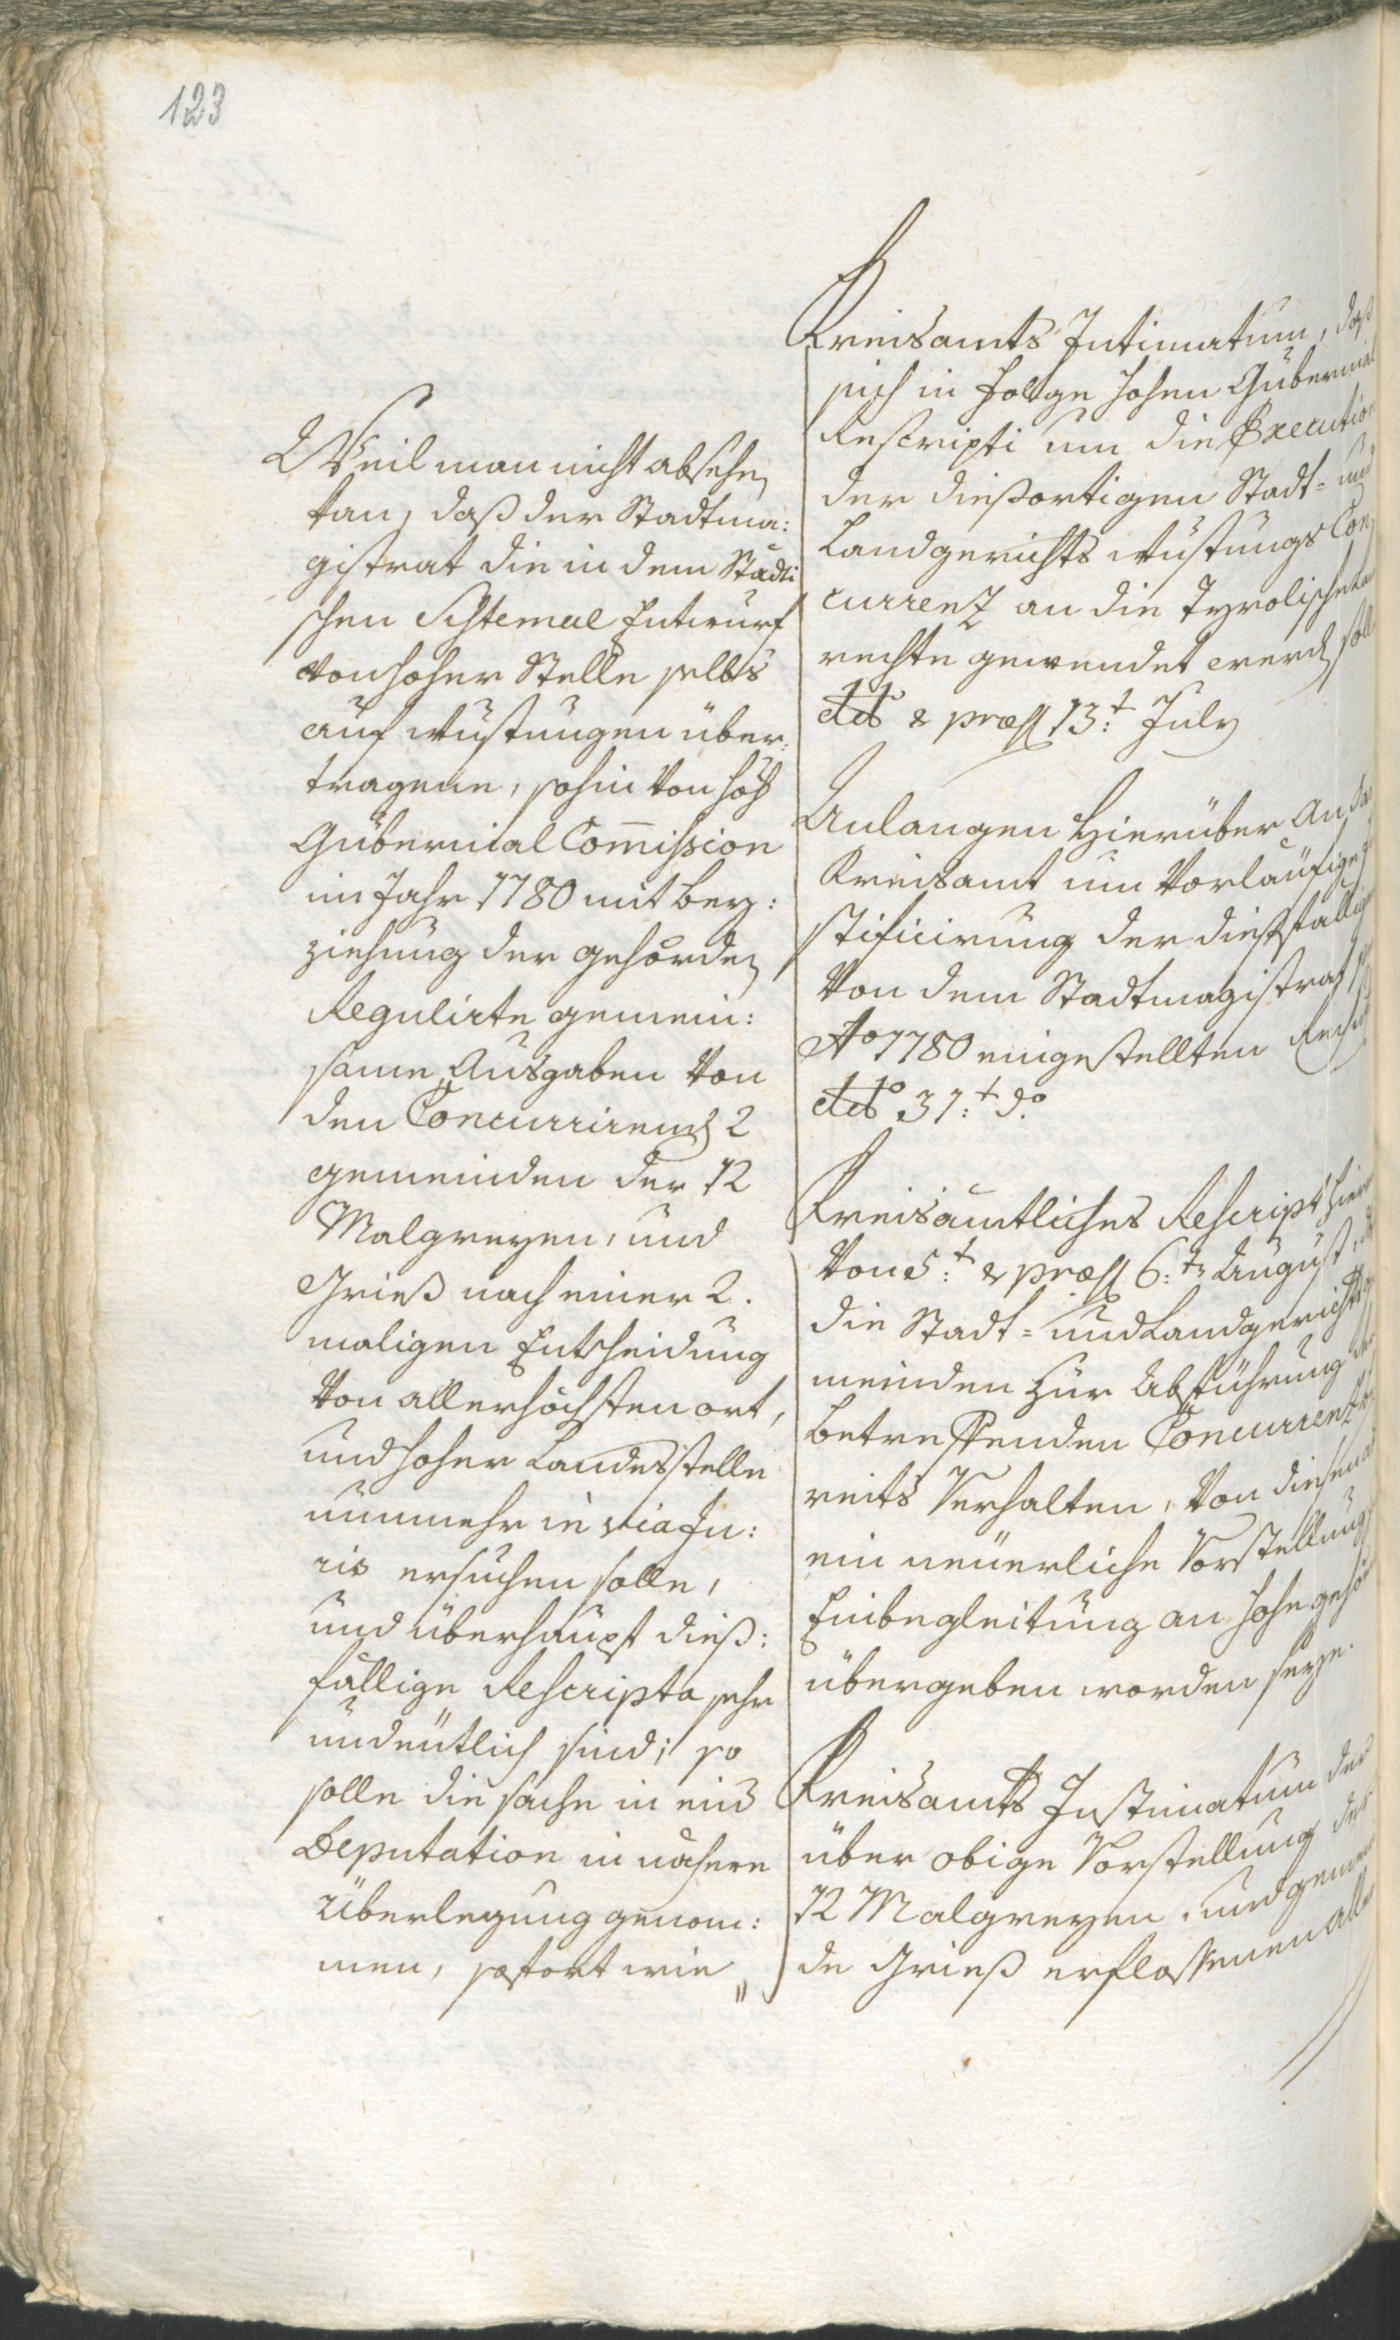 123
Weil man nicht absehen
kan, daß der Stadtma:
gistrat die in dem Stadti
schen Sistemal Entwurf
von hoher Stelle selbs
auf Wustungen über:
tragene, sohin von höh
Gubernial Com̅ission
im Jahr 1780 mit bey:
ziehung der gehörden
Regulirte gemein:
same Ausgaben von
den Concurrirenden 2
gemeinden der 12
Malgreyen, und
Grieß nach einer 2.
maligen Entscheidung
von allerhöchsten ort,
und hoher Landesstelle
nunmehr in via Ju:
ris ersuchen solle,
und überhaupt dieß:
fällige Rescripta sehr
undeutlich sind; so
solle die sache in eine
Deputation in nähere
Überlegung genom:
men, sofort wie
Kreisamts Intimatum, daß
sich in folge hohen Gubernial
Rescripti um die Execution
der dießortigen Stadt- und
Landgerichts Wustungs Con
currenz an die Tyrolische Land
rechte gewendet werden solle
dd̅o & præs 13:t July
Anlangen hierüber an das
Kreisamt um vorläufige
stificirung der dießfälligen
von dem Stadtmagistrat
Ao 1780 eingestellten
dd̅o 31:t do
Kreisämtliches Rescript hier
von 5:t & præs 6:tn August,
die Stadt- und Landgerichts
meinden zur Abführung der
betreffenden Concurrenz
reits verhalten, von diesen
ein neüerliche Vorstellung
Einbegleitung an hohe
übergeben worden seye.
Kreisamts Instimatum der
über obige Vorstellung der
12 Malgreyen, und gemein
de Grieß erflossenen aller